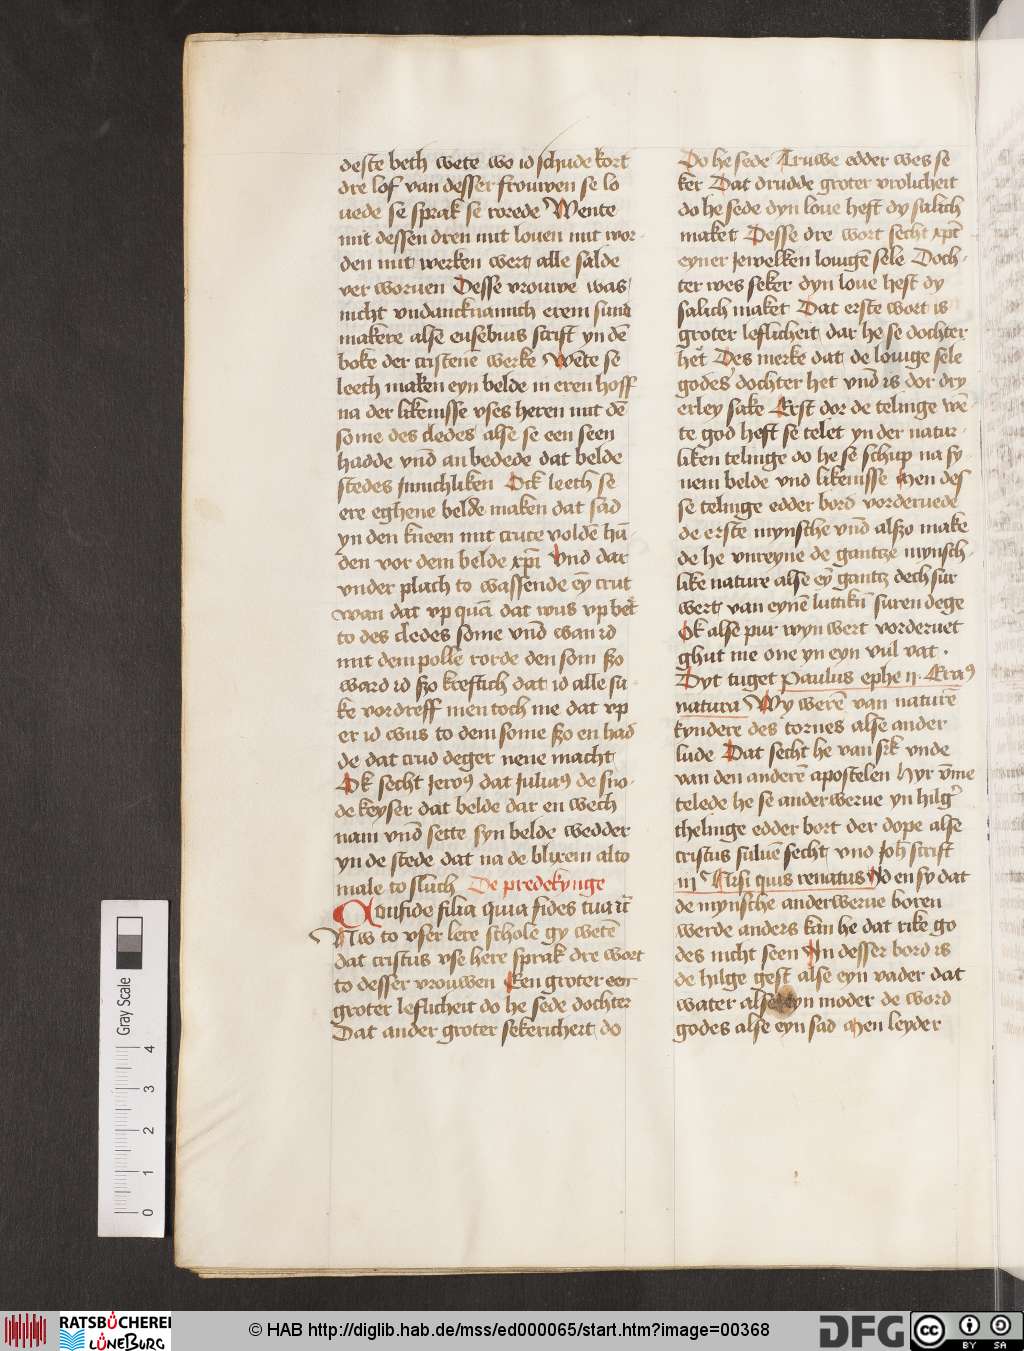 deste beth wete wo id schude kort
dre lof van desser frouwen se lo
uede se sprak se rorede Wente
mit dessen dren mit louen mit wor-
den mit werken wert alle salde
ver woruen Desse vrouwe was
nicht vndancknamich erem sund
makere alse eusebius scrift yn dē
boke der cristenē werke Wēte se
leeth maken eyn belde in eren hoff
na der likenisse vses heren mit dē
some des cledes alse se een seen
hadde vnd an bedede dat belde
stedes Innichliken Ock leeth se
ere eghene belde maken dat sad
yn den kneen mit cruce voldē hā
den vor dem belde xpī Vnd dar
vnder plach to wassende eȳ crut
wan dat vp quā dat wus vp bet
to des cledes some vnd wan id
mit dem pollē rorde den som szo
ward id szo kreftich dat id alle su
ke vordreff men toch me dat vp
er id wus to dem some szo en had
de dat crud deger nene macht
Ok secht Jeroꝰ dat Juliaꝰ de sno-
de keyser dat belde dar en wech
nam vnd sette syn belde wedder
yn de stede dat na de blixem alto
male to sluch De predekynge
Confide filia quia fides tua ꝛc̄
Nw to vser lere scholē gy wetē
dat cristus vse here sprak dre wort
to desser vrouwen Een groter eer
groter leflicheit do he sede dochter
Dat ander groter sekericheit do
Do he sede Truwe edder wes se
ker Dat drudde groter vrolicheit
do he sede dyn loue heft dy salich
maket Desse dre wort secht xpc̄
eyner jewelken louigē sele Doch-
ter wes seker dyn loue heft dy
salich maket Dat erste wort is
groter leflicheit dar he se dochter
het Des merke dat de louige sele
godes dochter het vnd is dor dry
erley sake Erst dor de telinge wē-
te god heft se telet yn der natur-
liken telinge do he se schup na sy-
nem belde vnd likenisse Men des
se telinge edder bord vorderuede
de erste mynsche vnd alszo make
de he vnreyne de gantze mynsch-
like nature alse eȳ gantz dech sur
wert van eynē luttikū suren dege
Ok alse pur wyn wert vorderuet
ghut me one yn eyn vul vat .
Dyt tuget Paulus ephe ij. Eraꝰ
natura Wy werē van naturē
kyndere des tornes alse ander
lude Dat secht he van sik vnde
van den anderē apostelen Hyr vm̄e
telede he se anderwerue yn hilgʼ
thelinge edder bort der dope alse
cristus suluē secht vnd Joh scrift
iij Nisi quis renatus Id en sy dat
de mynsche anderwerue boren
werde anders kan he dat rike go
des nicht seen In desser bord is
de hilge gest alse eyn vader dat
water alse eyn moder de word
godes alse eyn sad Men leyder
Gray Scale
4
3
2
1
0
RATSBÜCHEREI
LÜNEBURG
© HAB http://diglib.hab.de/mss/ed000065/start.htm?image=00368
DFG
cc
BY SA